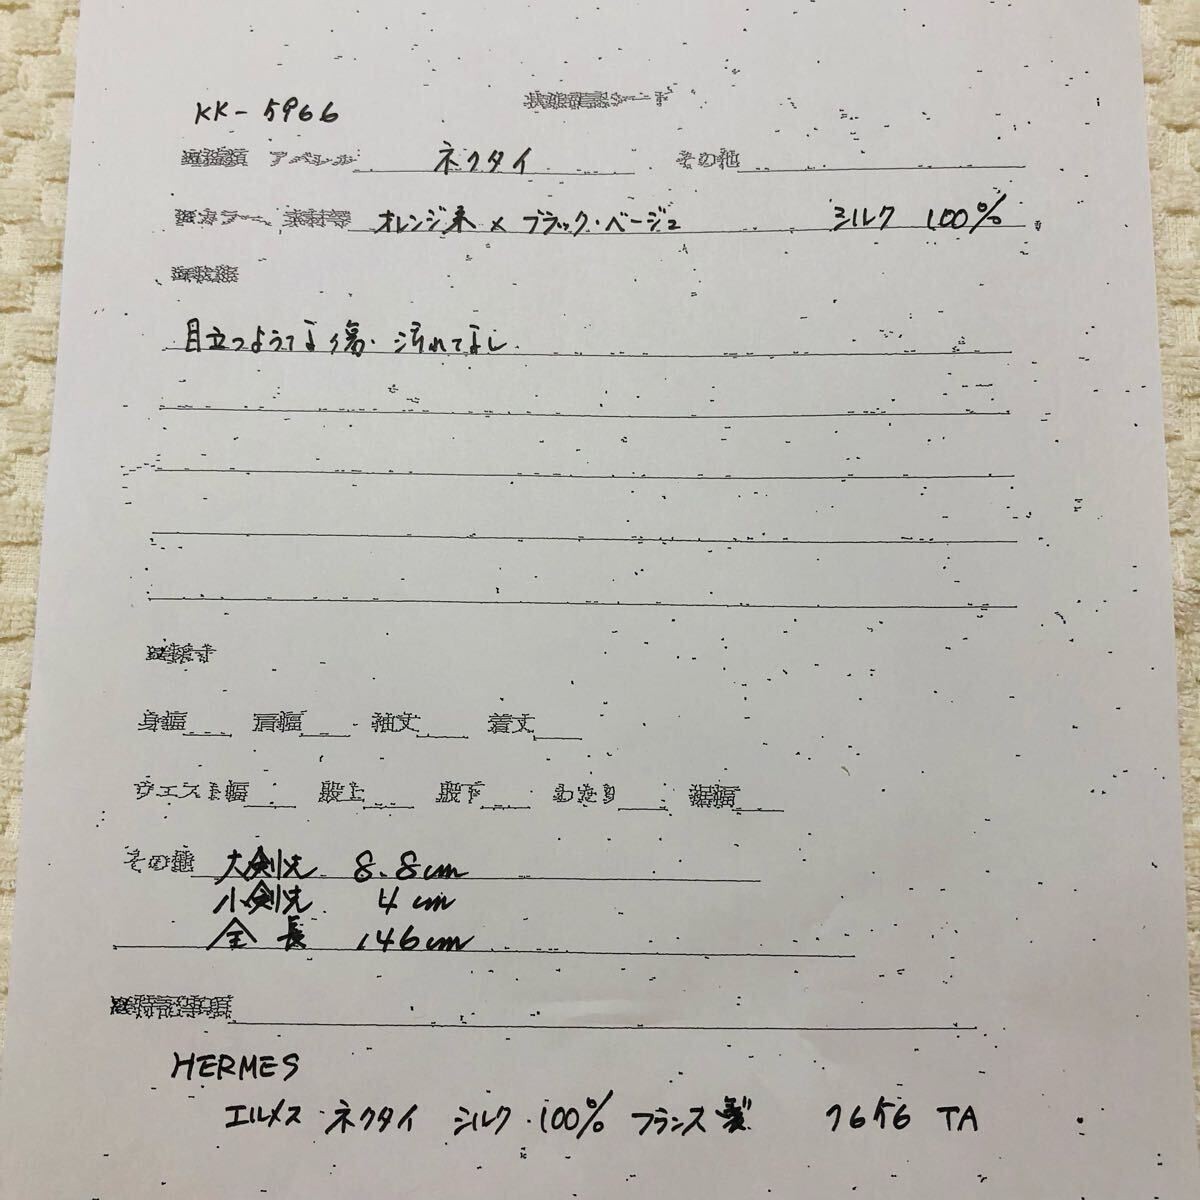 KK-5966
種類 アパレル ネクタイ その他
カラー、素材等 オレンジ系×ブラック・ベージュ シルク 100%
目立つような傷・汚れてなし
身幅 肩幅 袖丈 着丈
ウエスト幅 股上 股下 わたり 裾幅
その他 大剣先 8.8cm
小剣先 4cm
全長 146cm
特記事項
HERMES
エルメス・ネクタイ シルク・100% フランス製 7656 TA